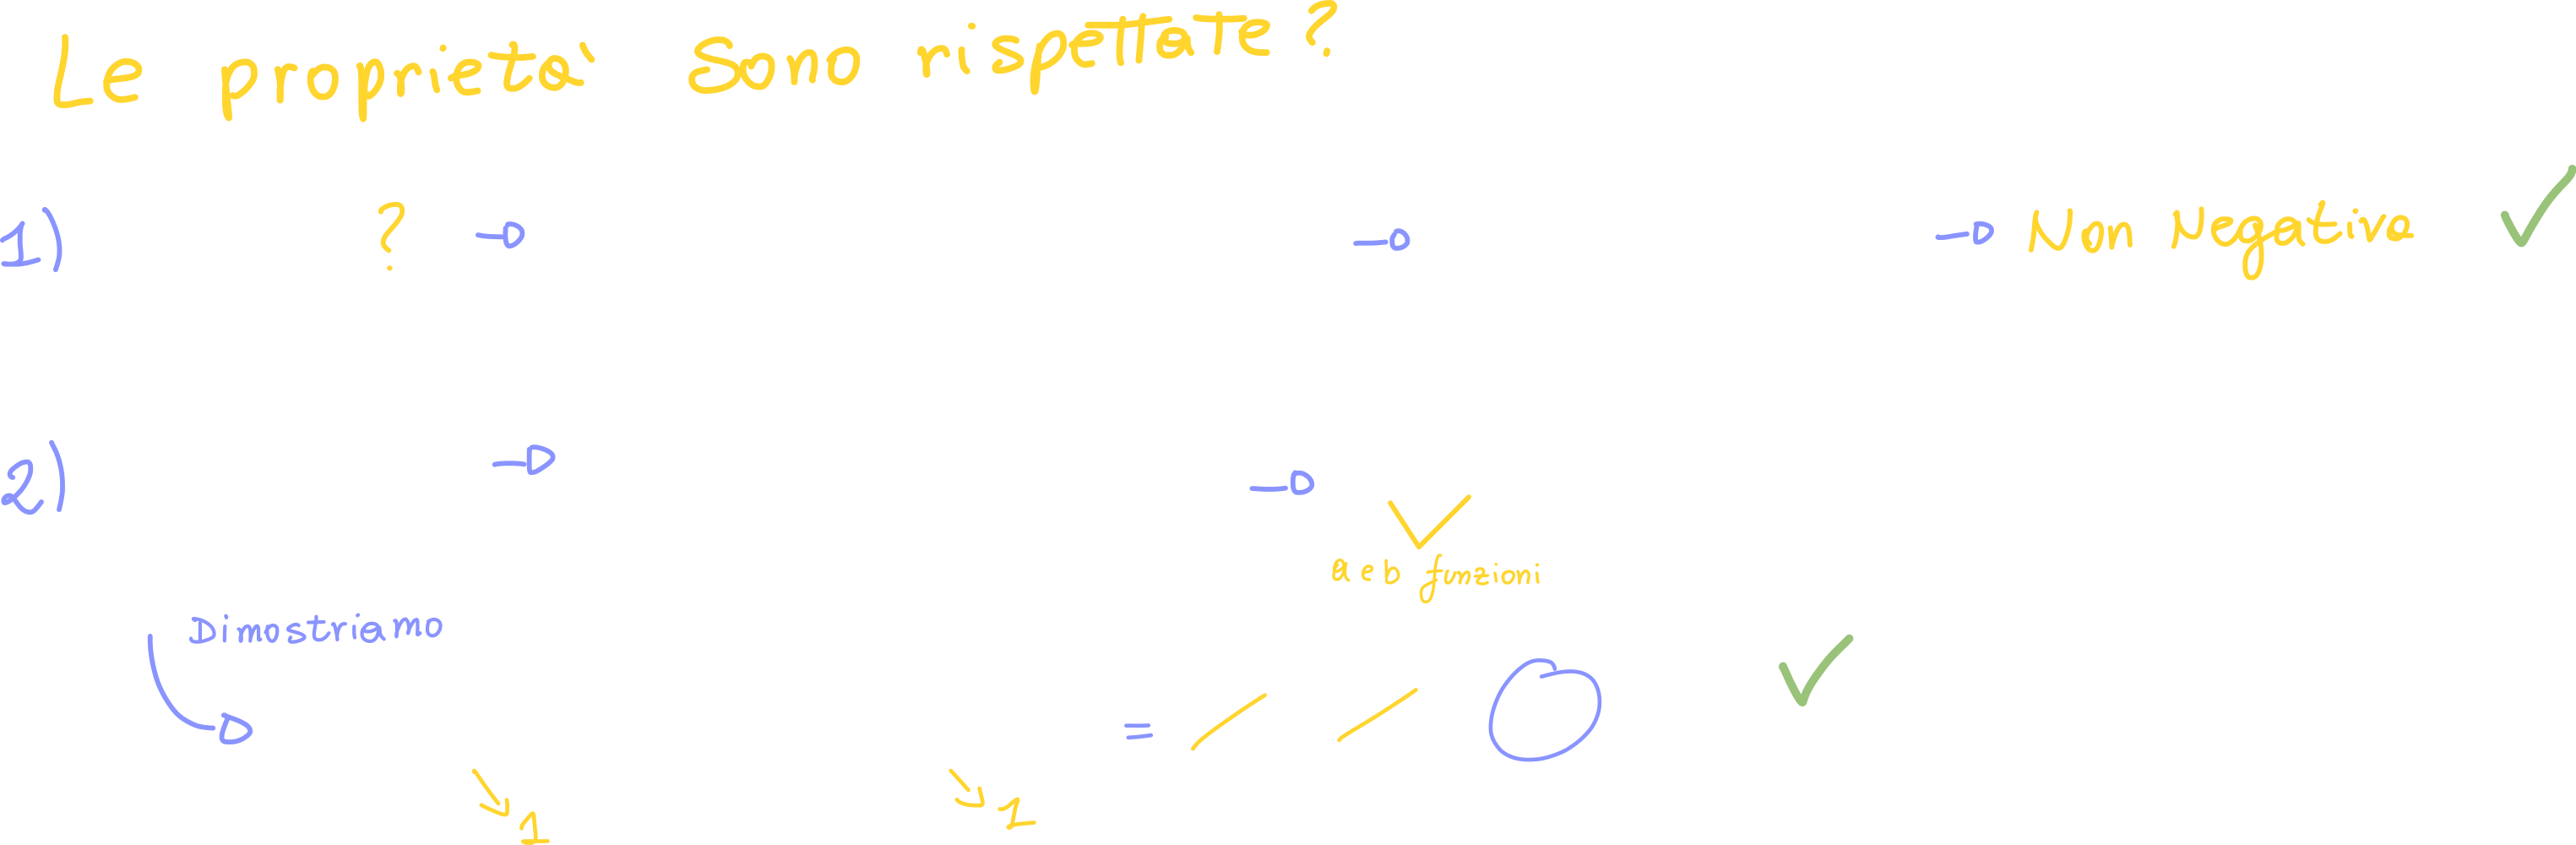 Le proprietà sono rispettate?
1) ? → → → Non Negativa ✓
2) → →
a e b funzioni
Dimostriamo
= ✓
1 1